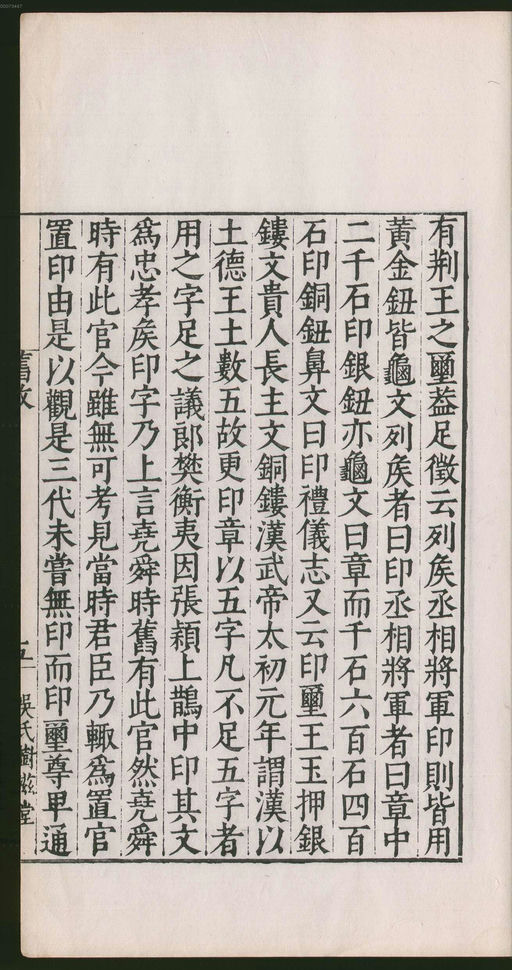 有荆王之璽葢足徵云列矦丞相將軍印則皆用
黃金鈕皆龜文列矦者曰印丞相將軍者曰章中
二千石印銀鈕亦龜文曰章而千石六百石四百
石印銅鈕鼻文曰印禮儀志又云印璽王玉押銀
鏤文貴人長主文銅鏤漢武帝太初元年謂漢以
土德王土數五故更印章以五字凡不足五字者
用之字足之議郎樊衡夷因張顥上鵲中印其文
爲忠孝矦印字乃上言堯舜時舊有此官然堯舜
時有此官今雖無可考見當時君臣乃輙爲置官
置印由是以觀是三代未嘗無印而印璽尊卑通
舊文
五
吳氏樹滋堂
00073447